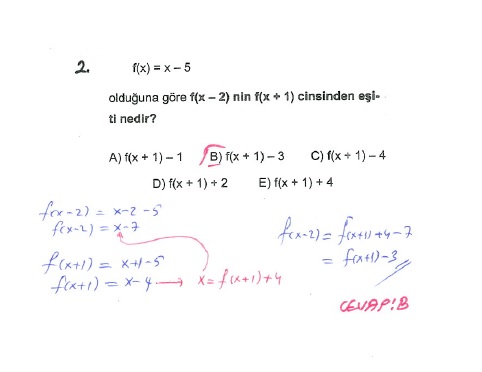 2. f(x) = x – 5
olduğuna göre f(x – 2) nin f(x + 1) cinsinden eşi-
ti nedir?
A) f(x + 1) – 1 B) f(x + 1) – 3 C) f(x + 1) – 4
D) f(x + 1) + 2 E) f(x + 1) + 4
f(x-2) = x-2-5
f(x-2) = x-7
f(x+1) = x+1-5
f(x+1) = x-4 → x = f(x+1)+4
f(x-2) = f(x+1)+4-7
= f(x+1)-3
CEVAP:B